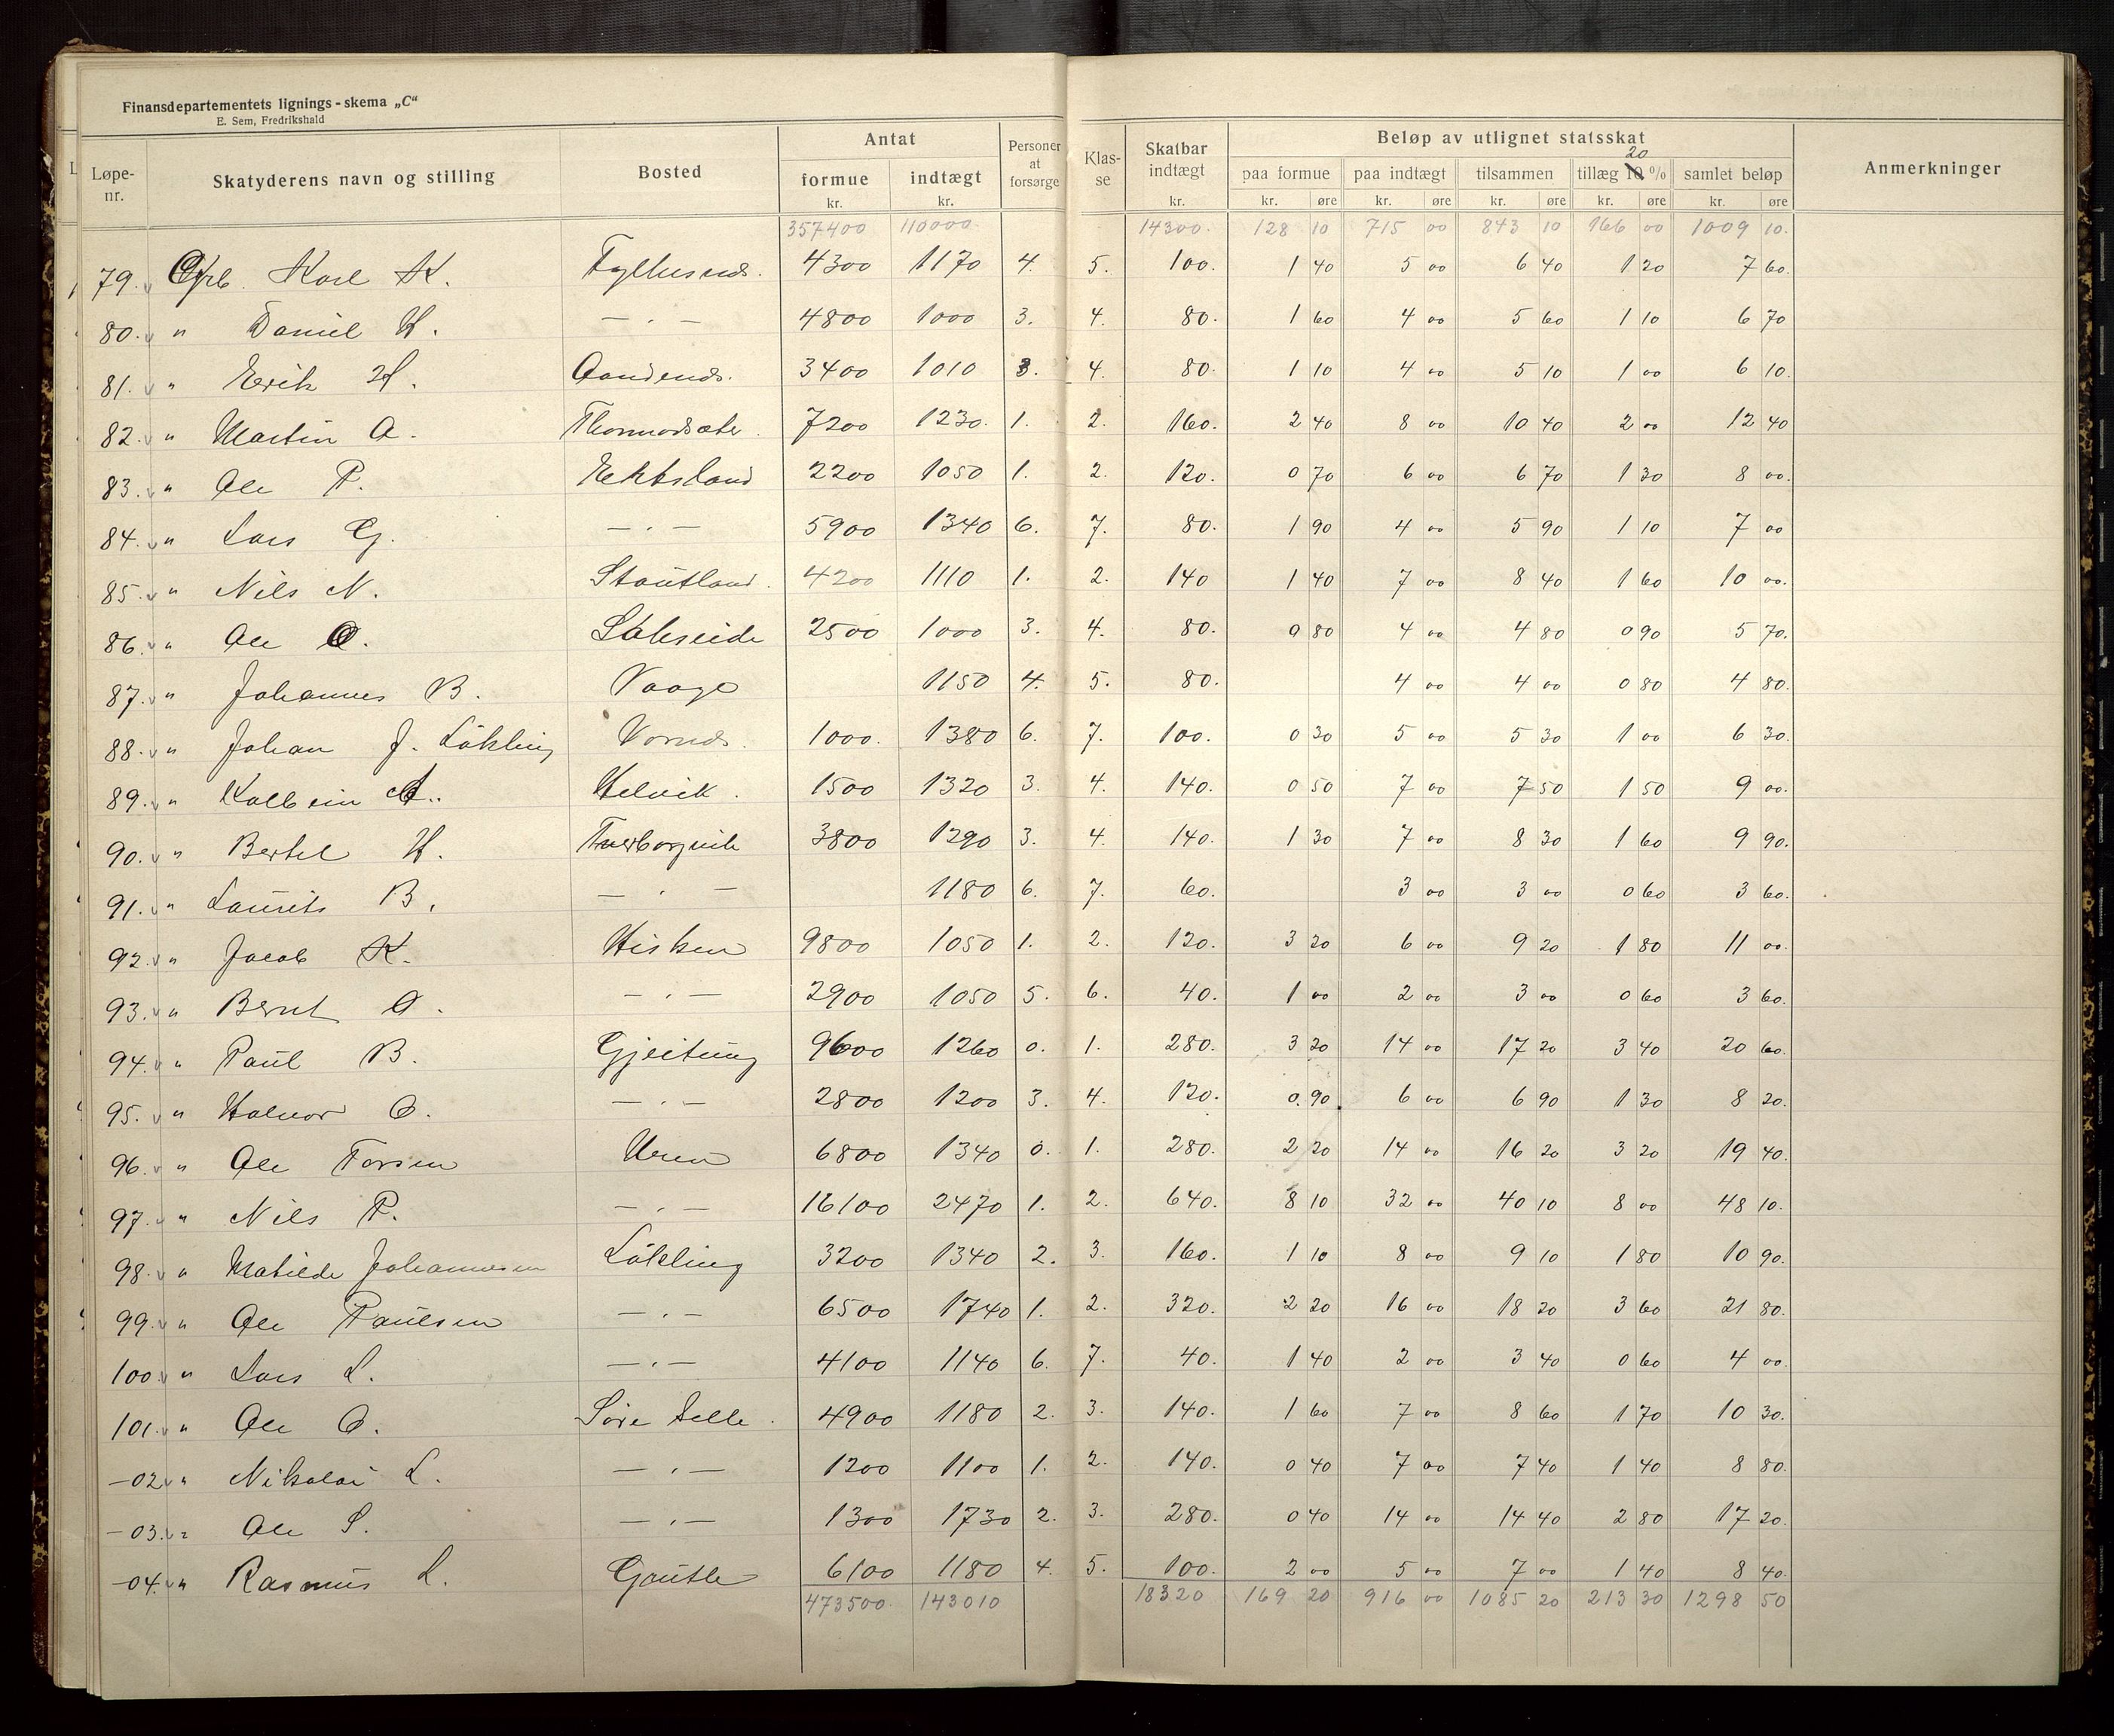 Finansdepartementets lignings-skema „C"
E. Sem, Fredrikshald
Løpe-nr. Skatyderens navn og stilling Bosted Antat formue kr. indtægt kr. Personer at forsørge Klas-se Skatbar indtægt kr. Beløp av utlignet statsskat paa formue kr. øre paa indtægt kr. øre tilsammen kr. øre tillæg 10 20 % kr. øre samlet beløp kr. øre Anmerkninger
357400 110000 14300. 128 10 715 00 843 10 166 00 1009 10.
79. Grb. Karl K. 4300 1170 4. 5. 100. 1 40 5 00 6 40 1 20 7 60.
80. " Daniel H. — " — 4800 1000 3. 4. 80. 1 60 4 00 5 60 1 10 6 70
81. " Erik H. 3400 1010 3. 4. 80. 1 10 4 00 5 10 1 00 6 10.
82. " Martin A. Thormodsæter 7200 1230. 1. 2. 160. 2 40 8 00 10 40 2 00 12 40
83. " Ole P. Ektsland 2200 1050 1. 2. 120. 0 70 6 00 6 70 1 30 8 00.
84. " Lars G. — " — 5900 1340 6. 7. 80. 1 90 4 00 5 90 1 10 7 00
85. " Nils N. Stautland. 4200 1110 1. 2. 140 1 40 7 00 8 40 1 60 10 00.
86. " Ole O. Sakseide 2500 1000 3. 4. 80. 0 80 4 00 4 80 0 90 5 70.
87. " Johannes B. Vaage 1150 4. 5. 80. 4 00 4 00 0 80 4 80.
88. " Johan J. Løkling Vornes. 1000. 1380 6. 7. 100. 0 30 5 00 5 30 1 00 6 30.
89. " Kolbein A. Helvik. 1500 1320 3. 4. 140. 0 50 7 00 7 50 1 50 9 00.
90. " Bertel H. Tverborgvik 3800 1290 3. 4. 140. 1 30 7 00 8 30 1 60 9 90.
91. " Laurits B. — " — 1180 6. 7. 60. 3 00 3 00 0 60 3 60.
92. " Jacob K. Hisken 9800 1050 1. 2. 120. 3 20 6 00 9 20 1 80 11 00.
93. " Bernt O. — " — 2900 1050 5. 6. 40. 1 00 2 00 3 00 0 60 3 60.
94. " Paul B. Gjeitung 9600 1260 0. 1. 280. 3 20 14 00 17 20 3 40 20 60.
95. " Halvor O. — " — 2800 1200 3. 4. 120. 0.90 6 00 6 90 1 30 8 20.
96. " Ole Torsen Uren 6800 1340 0. 1. 280. 2 20 14 00 16 20 3 20 19 40.
97. " Nils P. — " — 16100 2470 1. 2. 640. 8 10 32 00 40 10 8 00 48 10.
98. " Matilde Johannesen Løkling 3200 1340 2. 3. 160. 1 10 8 00 9 10 1 80 10 90.
99. " Ole Paulsen — " — 6500 1740 1. 2. 320. 2 20 16 00 18 20 3 60 21 80.
100. " Lars L. — " — 4100 1140 6. 7. 40. 1 40 2 00 3 40 0 60 4 00.
101. " Ole O. Søre Selle. 4900 1180 2. 3. 140. 1 60 7 00 8 60 1 70 10 30.
—02 " Nikolai L. — " — 1200 1100 1. 2. 140. 0 40 7 00 7 40 1 40 8 80.
—03. " Ole S. — " — 1300 1730 2. 3. 280. 0 40 14 00 14 40 2 80 17 20.
—04. " Rasmus L. Gautle 6100 1180 4. 5. 100. 2 00 5 00 7 00 1 40 8 40.
473500 143010 18320 169 20 916 00 1085 20 213 30 1298 50